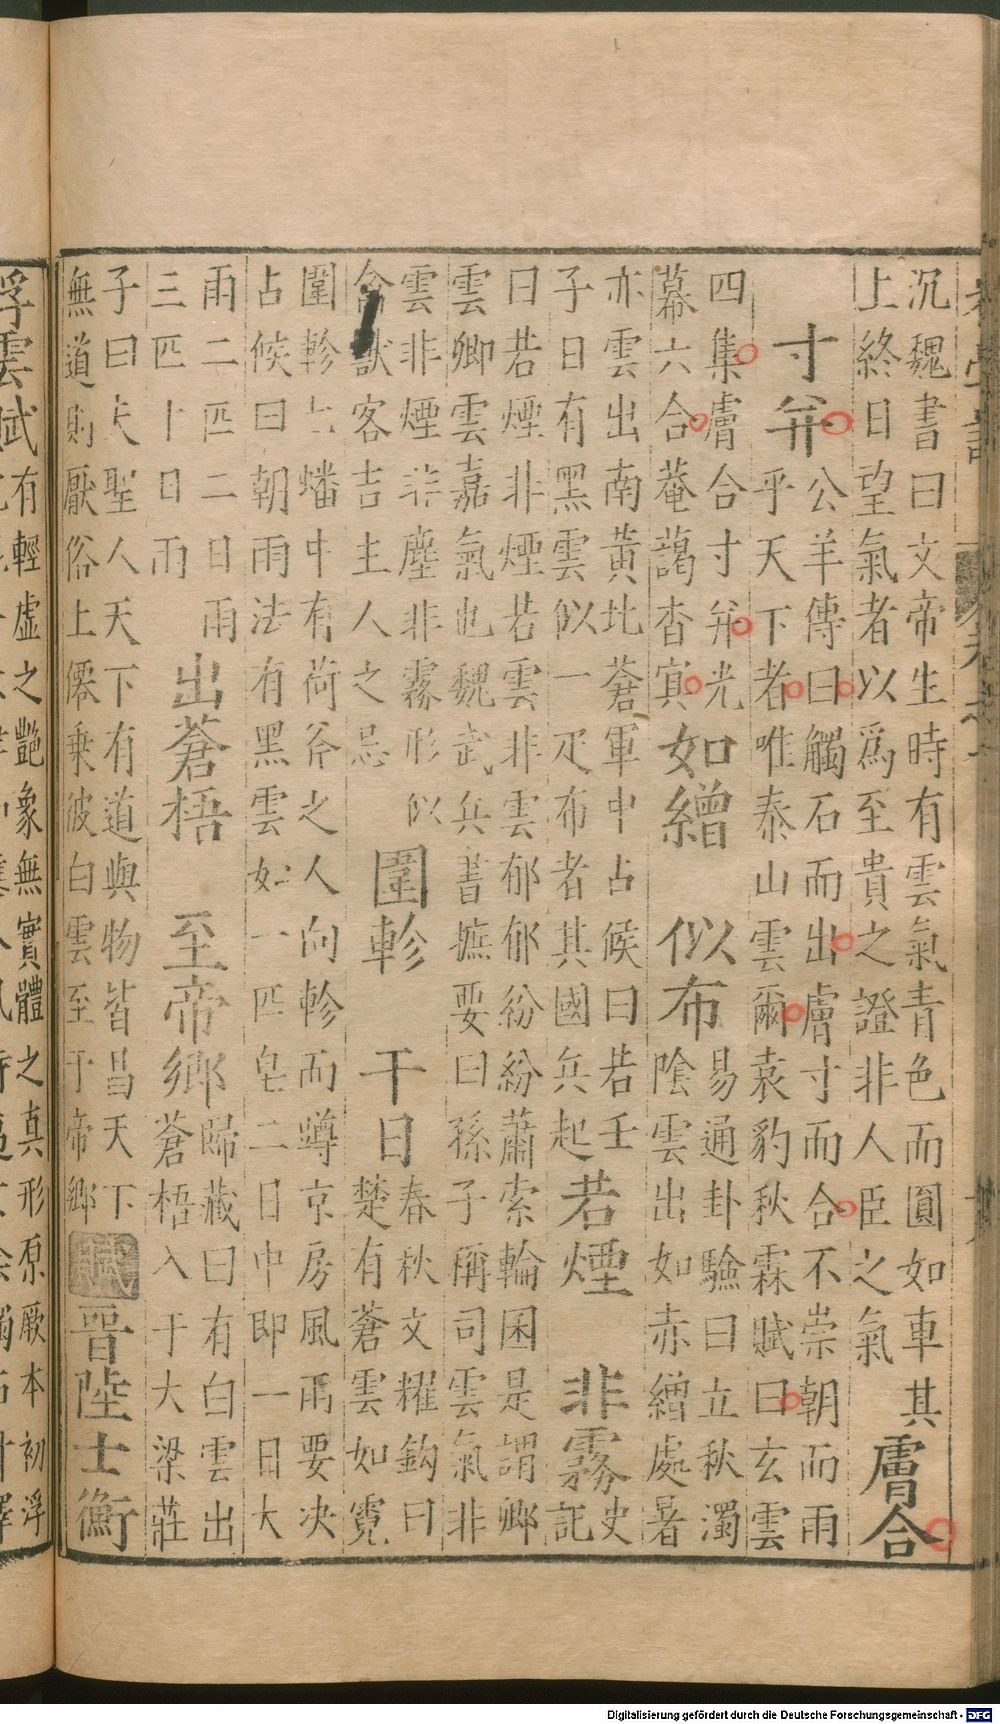 沉魏書曰文帝生時有雲氣青色而圓如車其
上終日望氣者以爲至貴之證非人臣之氣
膚合
寸弁
公羊傳曰觸石而出膚寸而合不崇朝而雨
乎天下者唯泰山雲爾袁豹秋霖賦曰玄雲
四集膚合寸弁光
幕六合菴藹杳寘
如繒
似布
易通卦驗曰立秋濁
陰雲出如赤繒處暑
亦雲出南黃北蒼軍中占候曰若壬
子日有黑雲似一疋布者其國兵起
若煙
非霧
史
記
曰若煙非煙若雲非雲郁郁紛紛蕭索輪囷是謂卿
雲卿雲嘉氣也魏武兵書摭要曰孫子稱司雲氣非
雲非煙非塵非霧形似
禽獸客吉主人之忌
圍軫
干日
春秋文耀鈎曰
楚有蒼雲如霓
圍軫七蟠中有荷斧之人向軫而蹲京房風雨要決
占候曰朝雨法有黑雲如一匹皂二日中即一日大
雨二匹二日雨
三匹十日雨
出蒼梧
至帝鄉
歸藏曰有白雲出
蒼梧入于大梁莊
子曰夫聖人天下有道與物皆昌天下
無道則厭俗上僊乗彼白雲至于帝鄉
賦
晉陸士衡
浮雲賦
有輕虛之艷象無實體之真形原厥本初浮
Digitalisierung gefördert durch die Deutsche Forschungsgemeinschaft - DFG